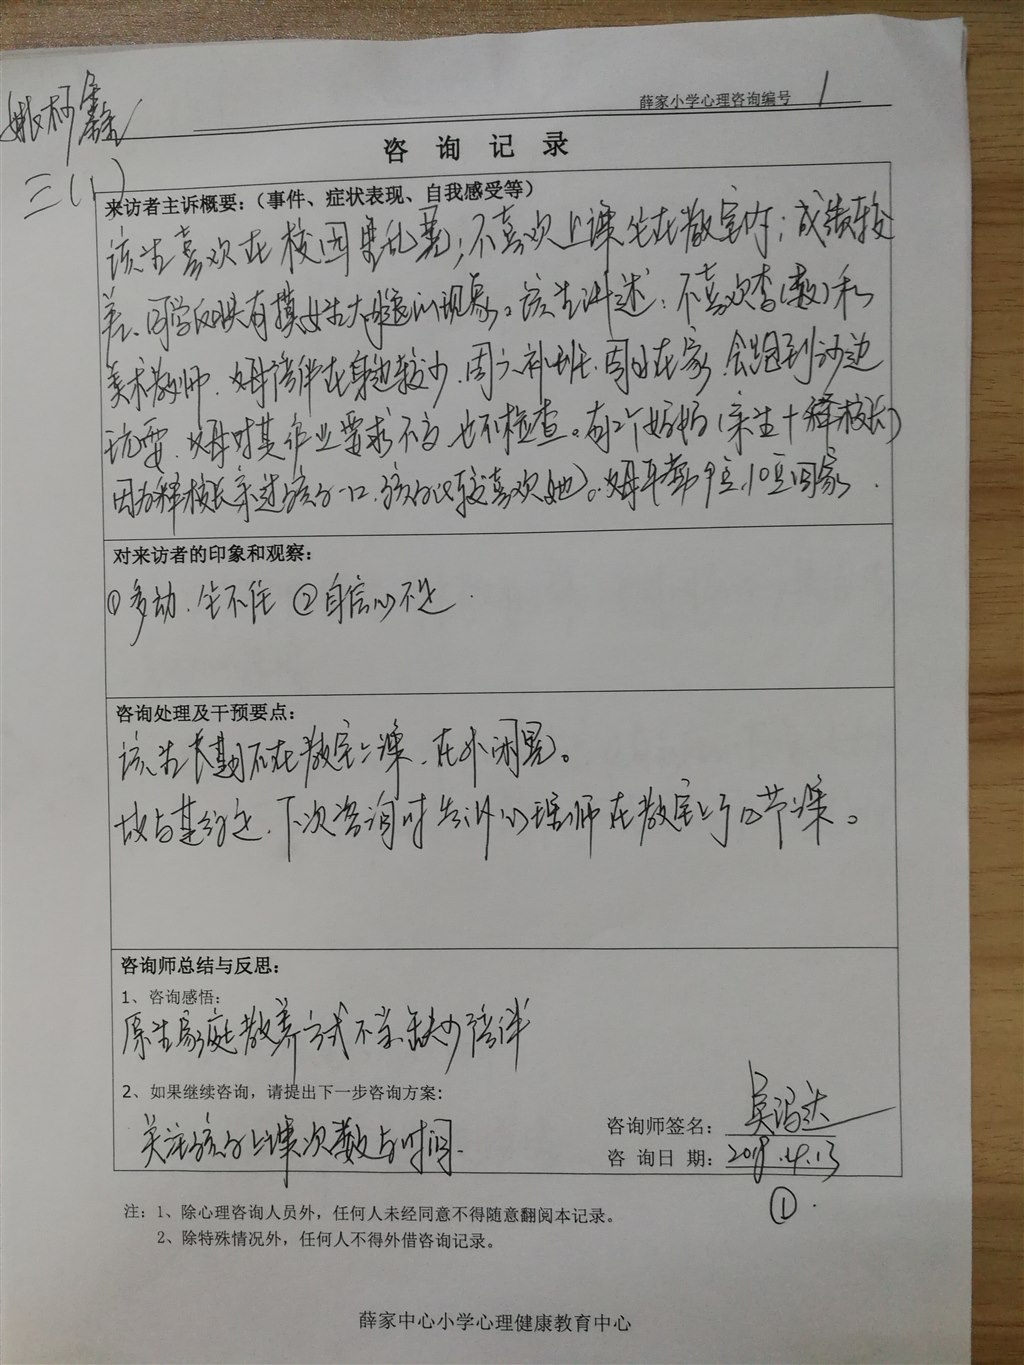 薛家小学心理咨询编号 1
三(1)
咨 询 记 录
来访者主诉概要：（事件、症状表现、自我感受等）
该生喜欢在校园里乱晃；不喜欢上课坐在教室内；成绩较
差、同学反映有摸女生大腿的现象。该生讲述：不喜欢李(数)和
美术教师、父母陪伴在身边较少、周六补班、周日在家、会跑到沙边
玩耍、父母对其作业要求不高也不检查。有2个妈妈(亲生+薛校长)
因为薛校长亲过孩子一口、孩子比较喜欢她。父母平常9点、10点回家.
对来访者的印象和观察：
①多动、坐不住 ②自信心不足.
咨询处理及干预要点：
该生长期不在教室上课、在外闲晃。
故与其约定、下次咨询时告诉心理师在教室上了几节课。
咨询师总结与反思：
1、咨询感悟：
原生家庭教养方式不当缺少陪伴
2、如果继续咨询，请提出下一步咨询方案：
关注孩子上课次数与时间.
咨询师签名：
咨 询日 期： 2018.4.13
①.
注：1、除心理咨询人员外，任何人未经同意不得随意翻阅本记录。
2、除特殊情况外，任何人不得外借咨询记录。
薛家中心小学心理健康教育中心